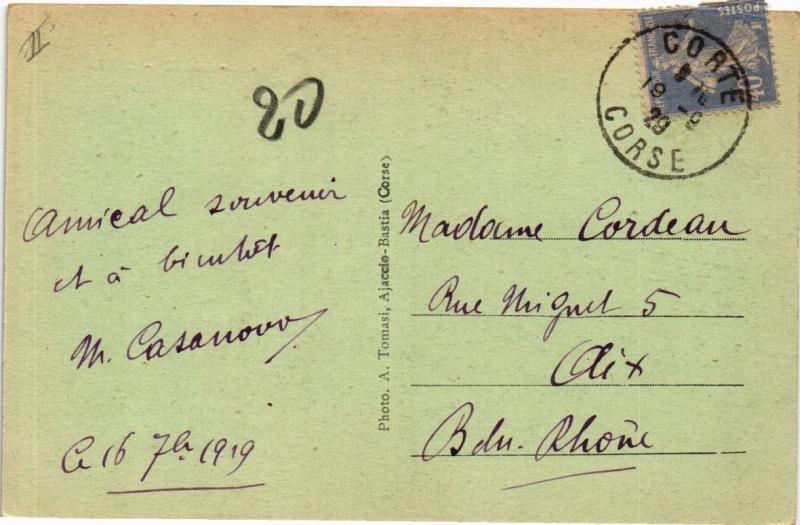 II
20
Amical souvenir
et à bientôt
M. Casanova
Ce 16 7bre 1919
Photo. A. Tomasi, Ajaccio-Bastia (Corse)
POSTES
FRANÇAISE
40
CORTE
19 -9
29
CORSE
Madame Cordeau
Rue Mignet 5
Aix
Bdu. Rhône